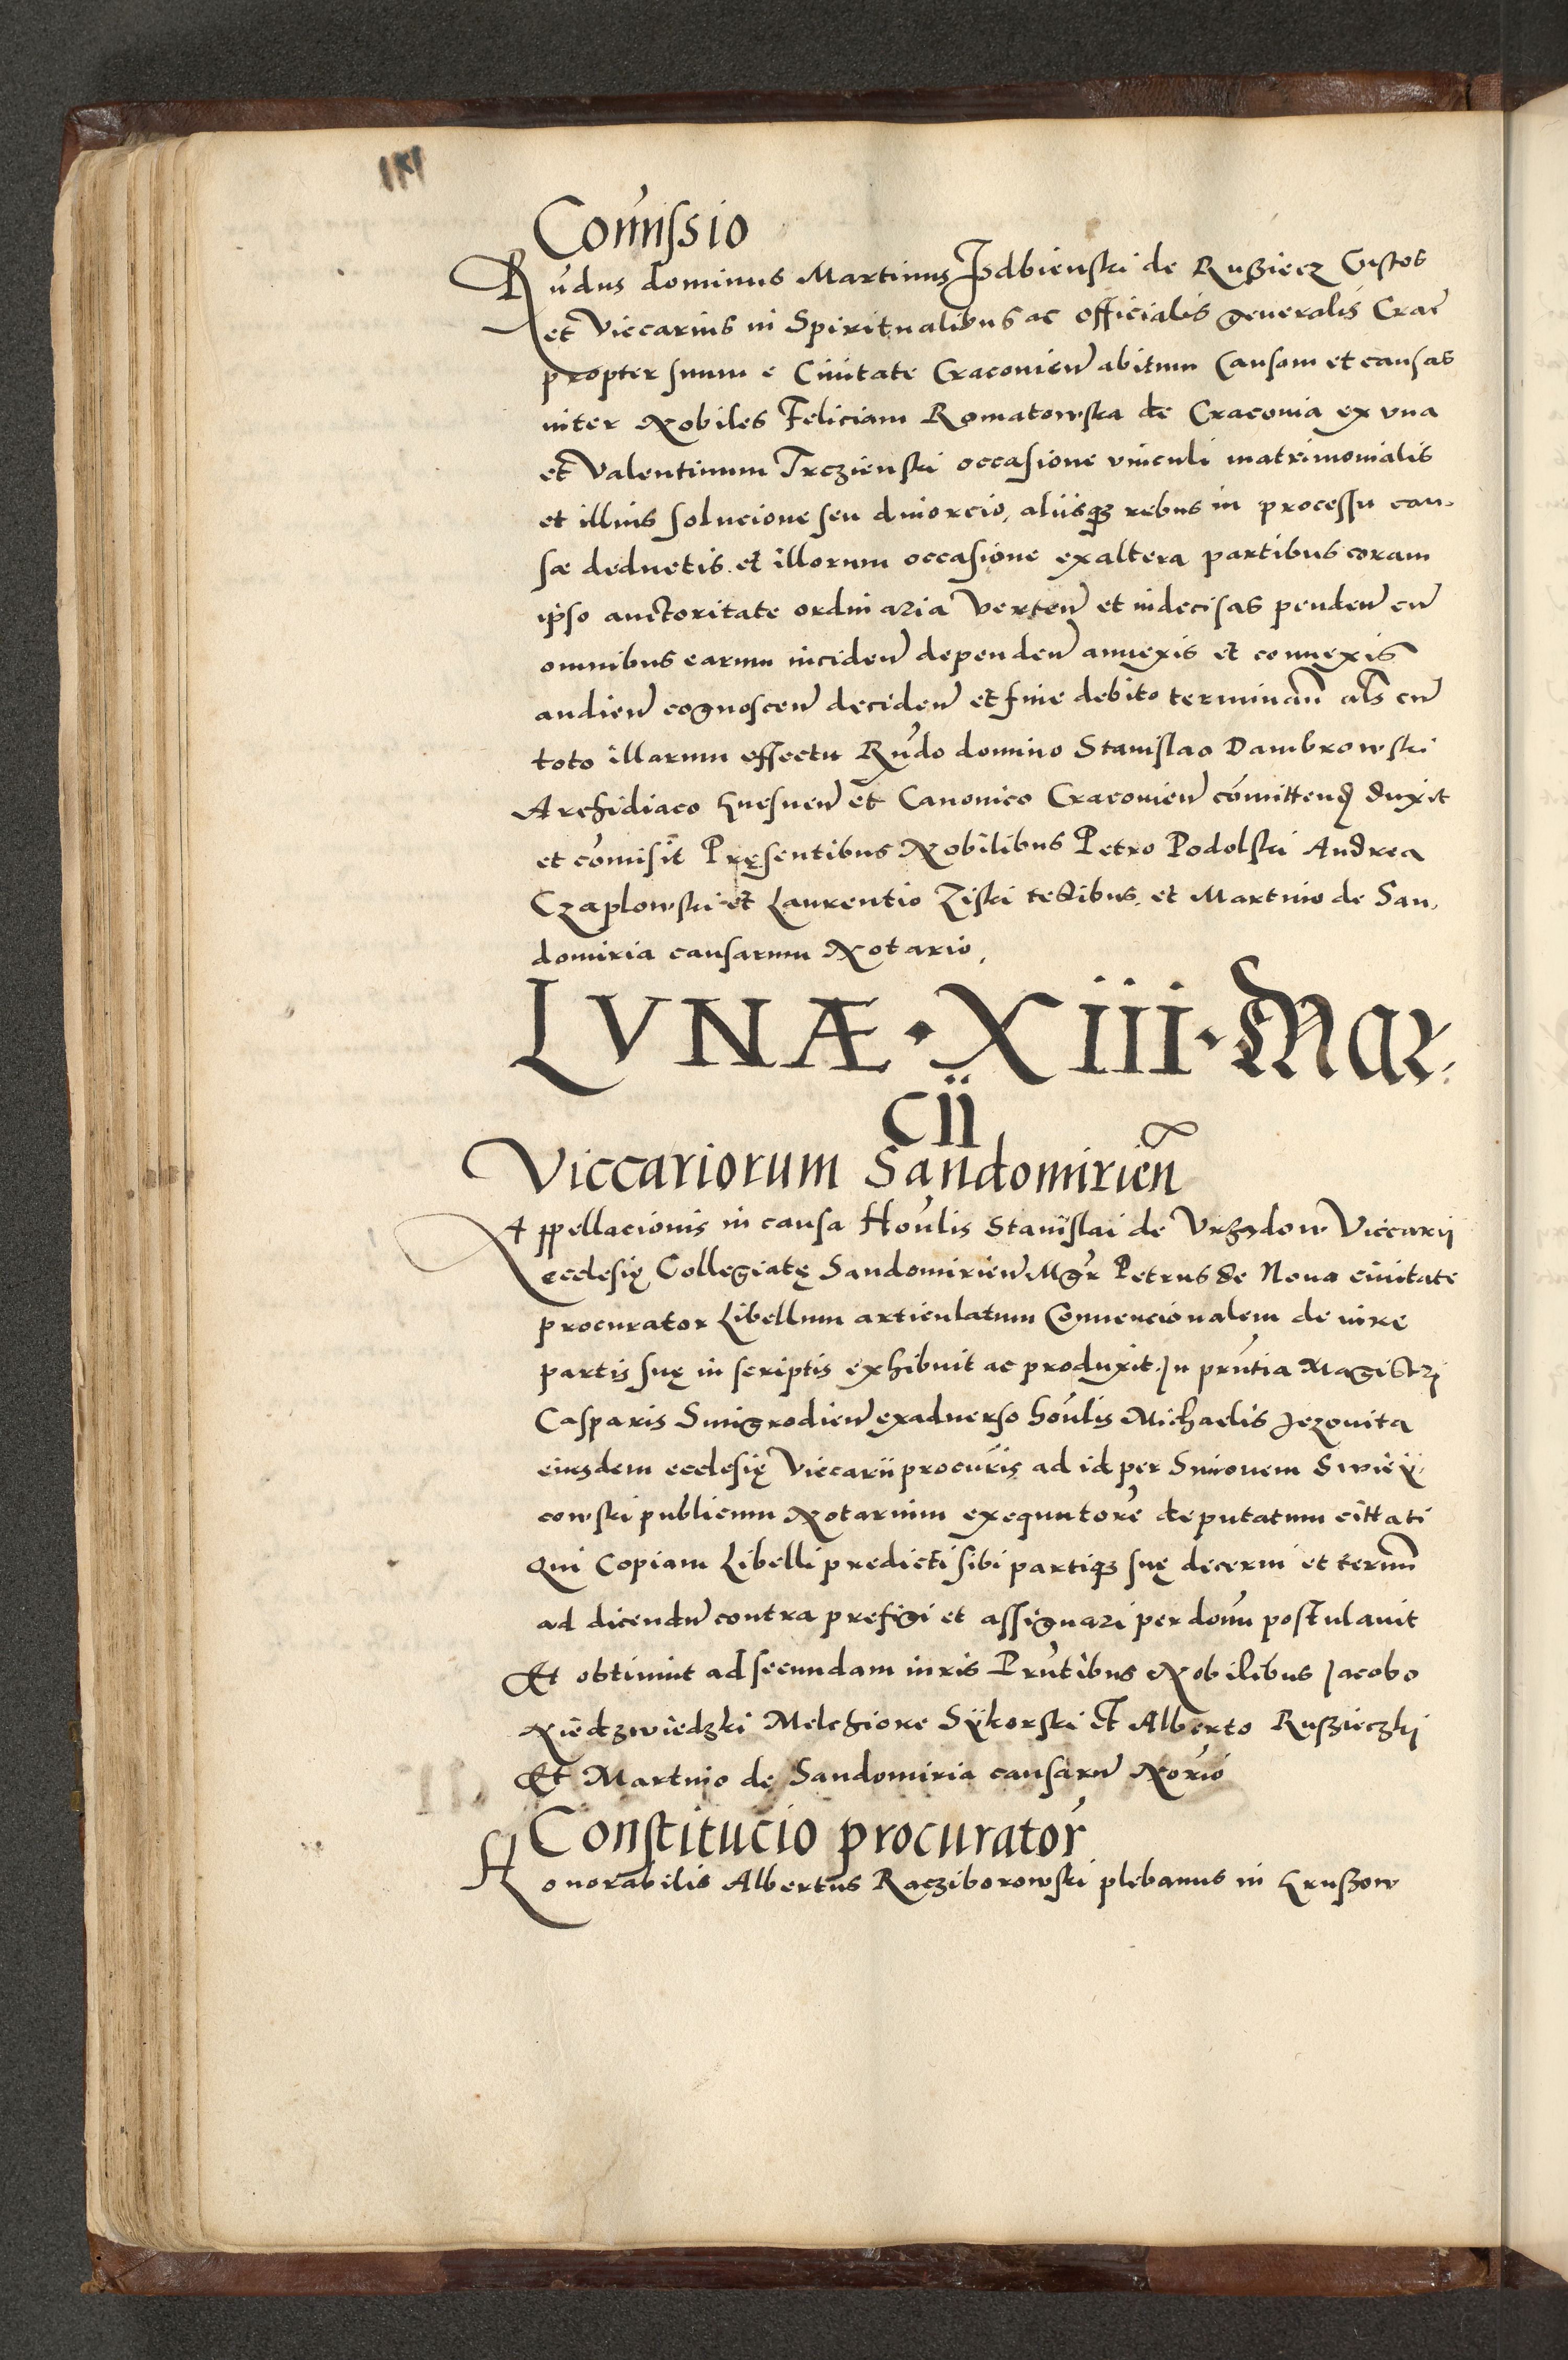 Com̃issio
Rũdus dominus Martinus Izdbienski de Rusziecz Custos
et Viccarius in Spiritualibus ac officialis generalis Crac̃
propter suum e Ciuitate Cracovien̄ abitum Causam et causas
inter Nobiles Feliciam Romatowska de Cracovia ex vna
et Valentinum Trczienski occasione vinculi matrimonialis
et illius solucione seu diuorcio, aliisq3 rebus in processu cau-
sæ deductis. et illorum occasione ex altera partibus coram
ipso auctoritate ordinaria verten̄ et indecisas penden̄ cu̅
omnibus earum inciden̄ dependen̄ annexis et connexis
audien̄ cognoscen̄ deciden̄ et fine debito terminan̄ als cu̅
toto illarum effectu Rũdo domino Stanislao Dambrowski
Archidiaco Gnesnen̄ et Canonico Cracovien̄ com̃ittend̨ duxit
et com̃isit Pręsentibus Nobilibus Petro Podolski Andrea
Czaplowski et Laurentio Ziski testibus. et Martino de San-
domiria causarum Notario,
LVNÆ · XIII · Mar-
cii
Viccariorum Sandomirien̄
Appellacionis in causa Hon̄lis Stanislai de Vrzędow Viccarii
ecclesię Collegiatę Sandomirien̄ Mgr̃ Petrus de Noua ciuitate
procurator Libellum articulatum Conuencionalem de iure
partis suę in scriptis exhibuit ac produxit. In prñtia Magistri
Casparis Smigrodien̄ ex aduerso hon̄lis Michaelis Jezovita
eiusdem ecclesię Viccarii procuris̃ ad id per Simonem Swiey-
cowski publicum Notarium exequutore̅ deputatum cittati
Qui Copiam Libelli predicti sibi partiq3 suę decerni et termn̄
ad dicendu̅ contra prefigi et assignari per don̄u postulauit
Et obtinuit ad secundam iuris Prñtibus Nobilibus Jacobo
Niedzwiedzki Melchiore Sÿkorski et Alberto Ruszieczki
Et Martino de Sandomiria causaru̅ Norio̅
Constitucio procurator̃
Honorabilis Albertus Racziborowski plebanus in Gruszow